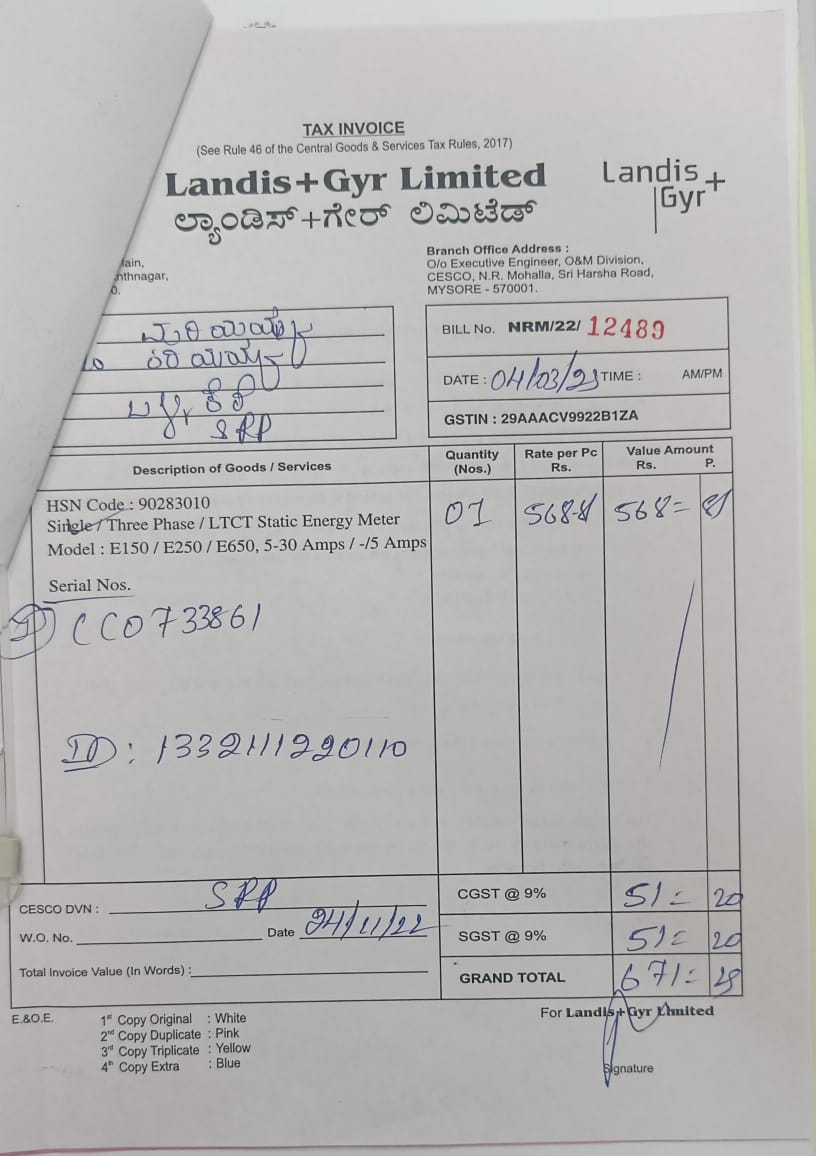 TAX INVOICE
(See Rule 46 of the Central Goods & Services Tax Rules, 2017)
Landis+Gyr Limited
ಲ್ಯಾಂಡಿಸ್+ಗೇರ್ ಲಿಮಿಟೆಡ್
Landis
Gyr+
nthnagar,
Branch Office Address :
O/o Executive Engineer, O&M Division,
CESCO, N.R. Mohalla, Sri Harsha Road,
MYSORE - 570001.
SRP
BILL No. NRM/22/ 12489
DATE : 04/03/23 TIME : AM/PM
GSTIN : 29AAACV9922B1ZA
Description of Goods / Services
Quantity (Nos.)
Rate per Pc Rs.
Value Amount Rs. P.
HSN Code : 90283010
Single / Three Phase / LTCT Static Energy Meter
Model : E150 / E250 / E650, 5-30 Amps / -/5 Amps
01 568= 568=
Serial Nos.
CC0733861
ID: 1332111220110
CESCO DVN : SRP
W.O. No. Date 24/11/22
Total Invoice Value (In Words) :
CGST @ 9% 51= 20
SGST @ 9% 51= 20
GRAND TOTAL 671=
E.&O.E.
1st Copy Original : White
2nd Copy Duplicate : Pink
3rd Copy Triplicate : Yellow
4th Copy Extra : Blue
For Landis+Gyr Limited
Signature